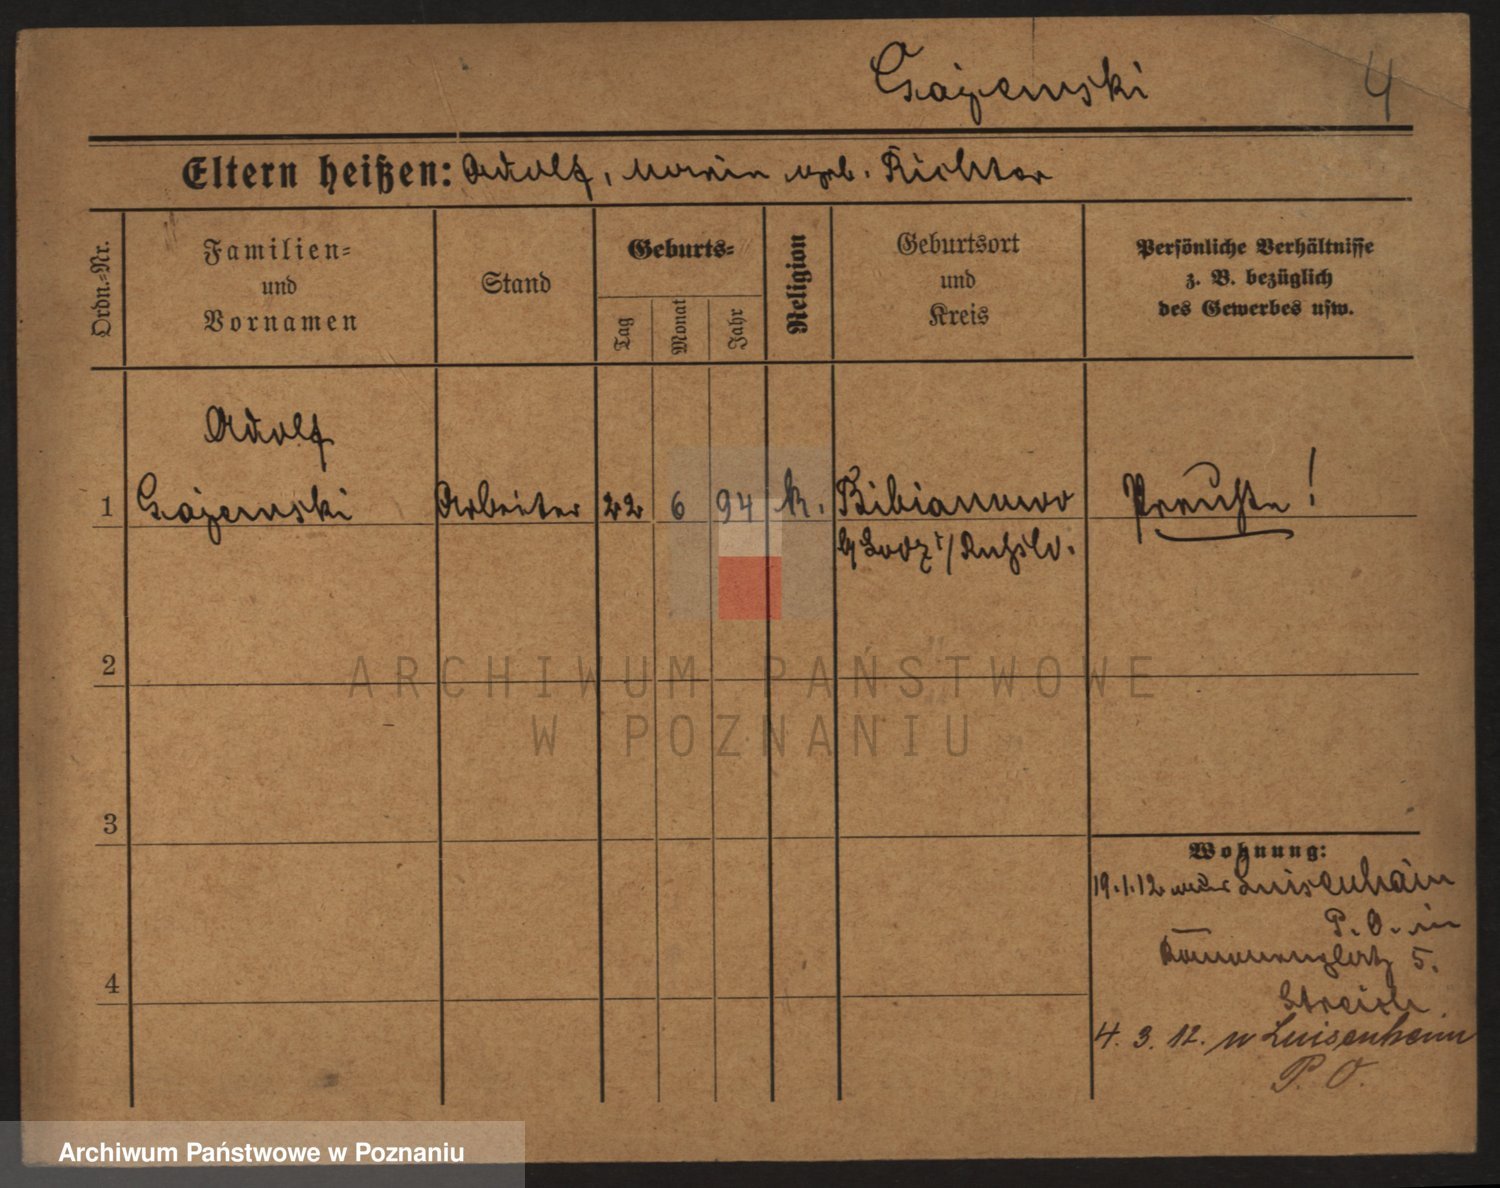 Gazewski
4
Eltern heißen: Adolf, Maria geb. Richter
Ordn.-Nr.
Familien-
und
Vornamen
Stand
Geburts-
Tag
Monat
Jahr
Religion
Geburtsort
und
Kreis
Persönliche Verhältnisse
z. B. bezüglich
des Gewerbes usw.
Adolf
1 Gazewski Arbeiter 22 6 94 k. Bibianowo Preuße!
b/ Lodz i/ Rußld.
2
ARCHIWUM PAŃSTWOWE
W POZNANIU
3
Wohnung:
19.1.12 Luisenhain
P. O. in
5.
4
4. 3. 12. n Luisenhain
P. O.
Archiwum Państwowe w Poznaniu